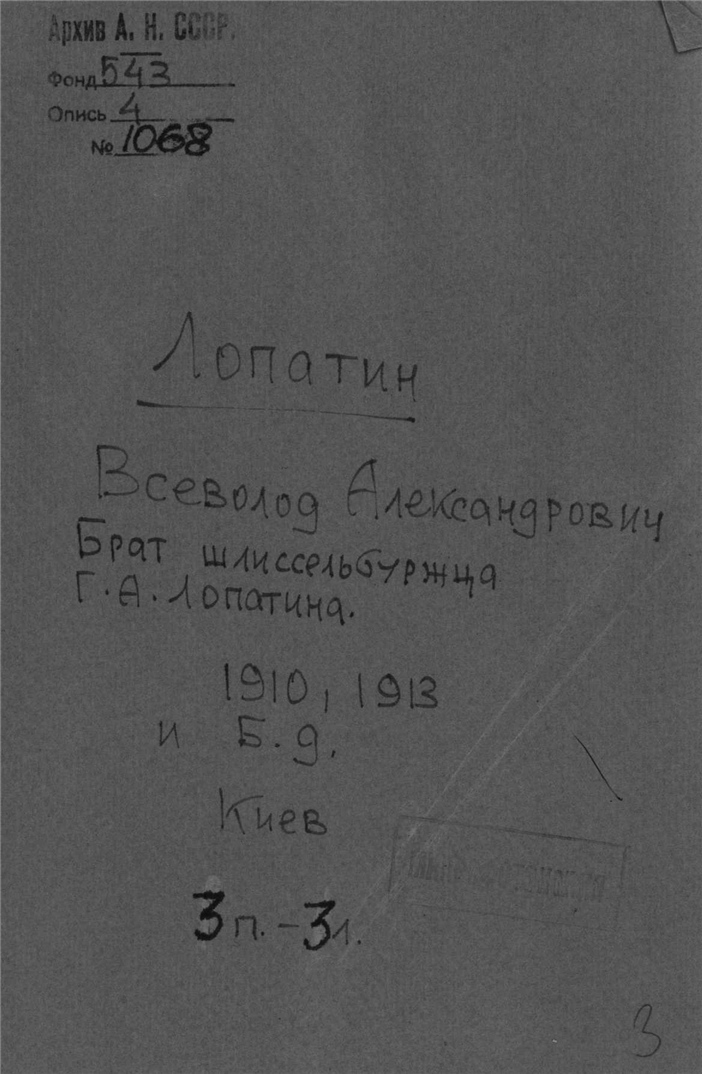 Архив А. Н. СССР.
Фонд 543
Опись 4
№ 1068
Лопатин
Всеволод Александрович
Брат шлиссельбуржца
Г. А. Лопатина.
1910, 1913
и Б. д.
Киев
3 п. - 3 л.
3